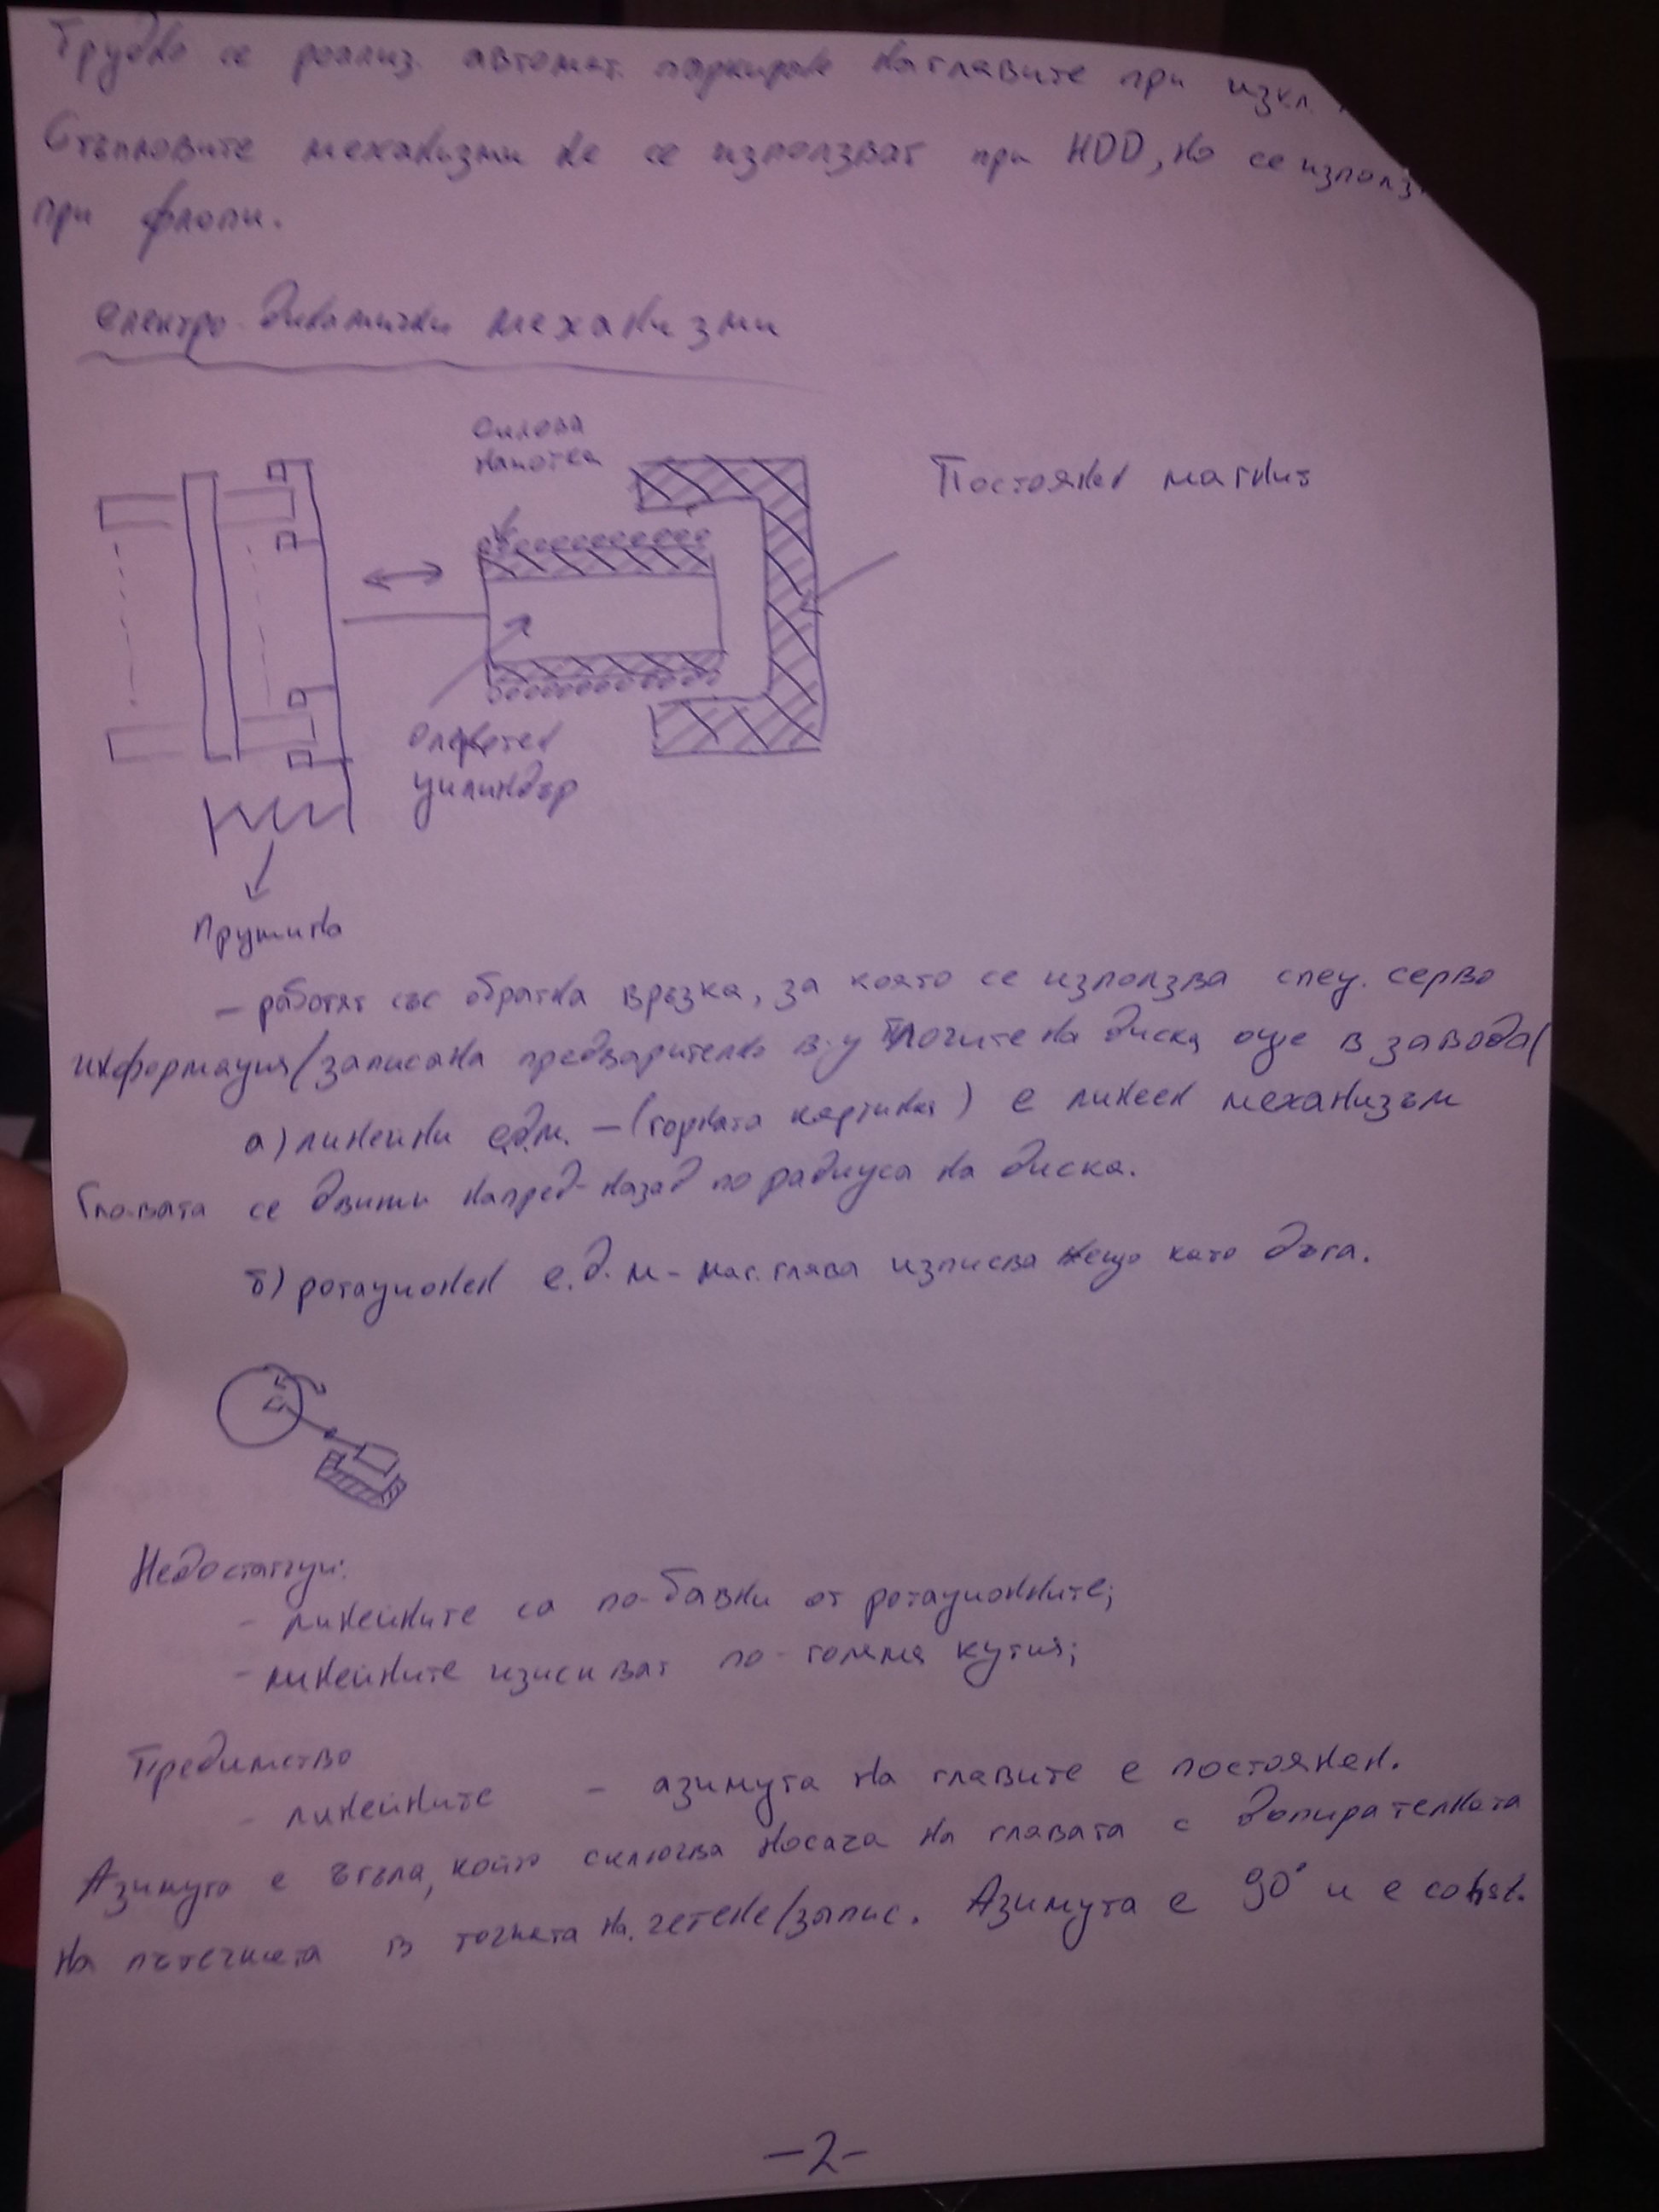 Трудно се реализ. автомат. паркиране на главите при изкл.
Стъпковите механизми не се използват при HDD, но се използ
при флопи.
електро-динамични механизми
Силова
намотка
Постоянен магнит
Олекотен
цилиндър
Пружина
– работят със обратна връзка, за която се използва спец. серво
информация/записана предварително в-у плочите на диска още в завода/
а) линейни е.д.м. – (горната картинка) е линеен механизъм
Главата се движи напред-назад по радиуса на диска.
б) ротационен е.д.м – маг. глава изписва нещо като дъга.
Недостатъци:
- линейните са по-бавни от ротационните;
- линейните изискват по-голяма кутия;
Предимство
- линейните – азимута на главите е постоянен.
Азимута е ъгъла, който сключва носача на главата с допирателната
на пътечката в точката на четене/запис. Азимута е 90° и е const.
–2–